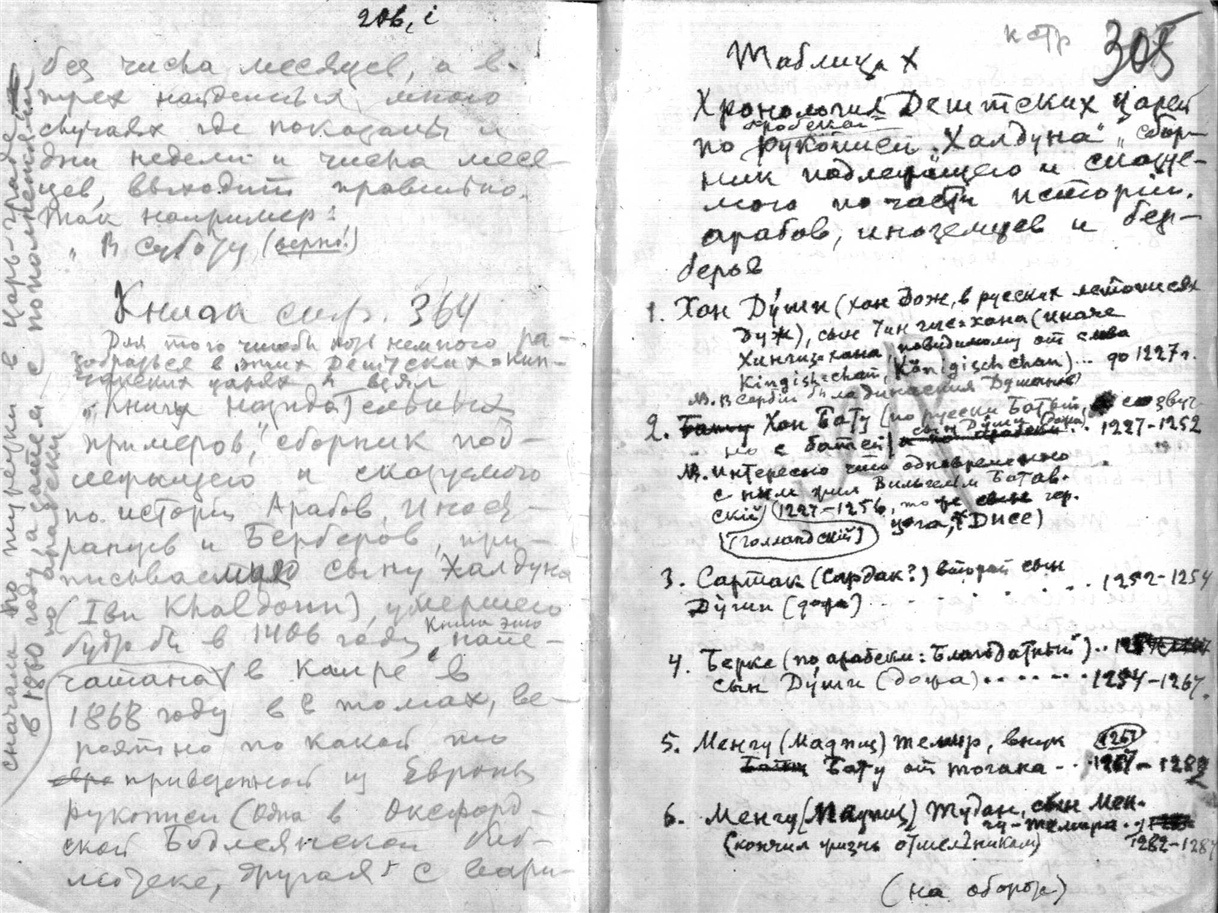 208, i
без числа месяцев, а в
трех найденных много
случаях где показаны и
дни недели и числа меся-
цев, выходит правильно.
Так например:
„В субботу (верно!)
Книга стр. 364
Для того чтобы хоть немного ра-
зобраться в этих Дештских-кип-
чакских царях я взял
„Книгу назидательных
примеров", сборник под-
лежащего и сказуемого
по истории Арабов, Инозе-
ранцев и Берберов, при-
писываемую сыну Халдуна
(Ibn Khaldoun), умершего
будто бы в 1406 году. Книга эта напе-
чатана в Каире в
1868 году в 8 томах, ве-
роятно по какой то
привезенной из Европы
рукописи (одна в Оксфорд-
ской Бодлеянской биб-
лиотеке, другая с вари-
сначала по турецки в Царь-граде
в 1860 году, а затем с пополнениями
по арабски
к стр 305
Таблица X
Хронология Дештских царей
по арабской рукописи „Халдуна" „Сбор-
ник подлежащего и сказуе-
мого по части истории
арабов, иноземцев и бер-
беров
1. Хан Души (хан Дож, в русских летописях
Дуж), сын Чингис-хана (иначе
Хингиз-хана, повидимому от слова
Kingisch-chan, Königischchan)... до 1227 г.
2. Хан Бату (по русски Батый, созвуч-
но с батей) сын Души (дожа) .. 1227-1252
NB. Интересно что одновременно
с ним жил Вильгельм Батав-
ский (1227-1256, то же гер.
цога,
(Голландский)
3. Сартак (Сардак?) второй сын
Души (дожа) . . . . . . 1252-1254
4. Берке (по арабски: Благодатный) ..
сын Души (дожа) . . . . . . 1254-1267.
5. Менгу (Мадриц) темир, внук 1267
Бату от тогана - .. 1267-1282
6. Менгу (Мадриц) Тудан, сын Мен-
гу-темира .
(кончил жизнь отшельником) 1282-1287
(на обороте)